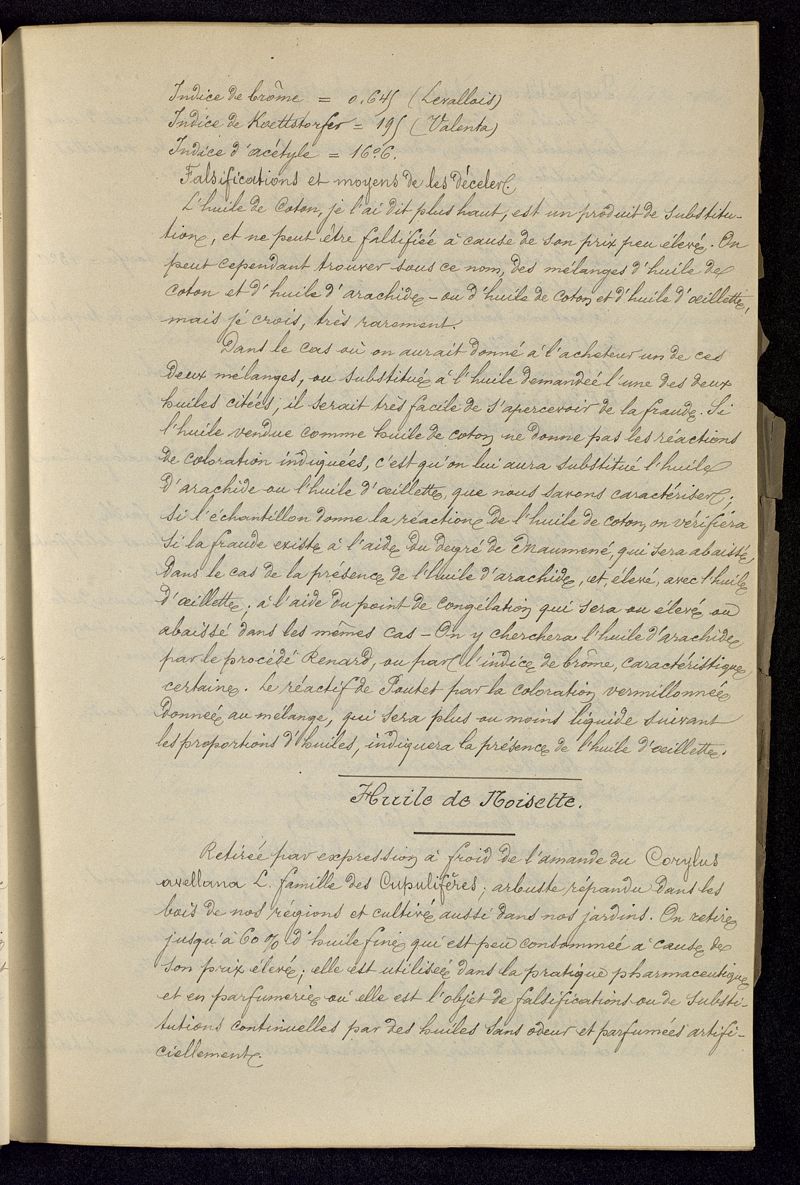 Indice de brôme = 0.645 (Levallois)
Indice de Koettstorfer = 195 (Valenta)
Indice d'acétyle = 16°6.
Falsifications et moyens de les déceler.
L'huile de Coton, je l'ai dit plus haut, est un produit de substitu-
tion, et ne peut être falsifiée à cause de son prix peu élevé. On
peut cependant trouver sous ce nom, des mélanges d'huile de
coton et d'huile d'arachide - ou d'huile de coton et d'huile d'œillette,
mais je crois, très rarement.
Dans le cas où on aurait donné à l'acheteur un de ces
deux mélanges, ou substitué à l'huile demandée l'une des deux
huiles citées, il serait très facile de s'apercevoir de la fraude. Si
l'huile vendue comme huile de coton ne donne pas les réactions
de coloration indiquées, c'est qu'on lui aura substitué l'huile
d'arachide ou l'huile d'œillette, que nous savons caractériser;
si l'échantillon donne la réaction de l'huile de coton, on vérifiera
si la fraude existe à l'aide du degré de Maumené, qui sera abaissé,
dans le cas de la présence de l'huile d'arachide, et, élevé, avec l'huile
d'œillette; à l'aide du point de congélation qui sera ou élevé ou
abaissé dans les mêmes cas - On y cherchera l'huile d'arachide
par le procédé Renard, ou par l'indice de brôme, caractéristique
certaine. Le réactif de Poutet par la coloration vermillonnée
donnée au mélange, qui sera plus ou moins liquide suivant
les proportions d'huiles, indiquera la présence de l'huile d'œillette.
Huile de Noisette.
Retirée par expression à froid de l'amande du Corylus
avellana L. famille des Cupulifères; arbuste répandu dans les
bois de nos régions et cultivé aussi dans nos jardins. On retire
jusqu'à 60 % d'huile fine qui est peu consommée à cause de
son prix élevé; elle est utilisée dans la pratique pharmaceutique
et en parfumerie où elle est l'objet de falsifications ou de substi-
tutions continuelles par des huiles sans odeur et parfumées artifi-
ciellement.